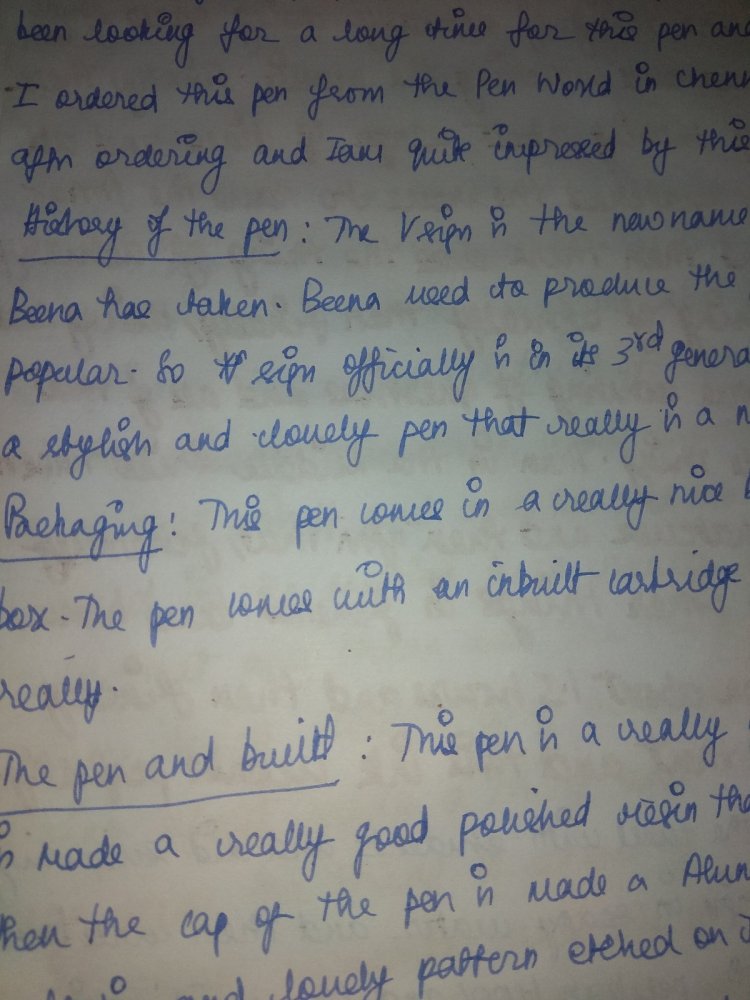 been looking for a long time for this pen and
I ordered this pen from the Pen World in chenn
ordering and I am quite impressed by this
History of the pen : The V sign is the new name
Beena has taken. Beena used to produce the
popular. So V sign officially is in its 3rd genera
a stylish and lovely pen that really is a n
Packaging : This pen comes in a really nice b
box. The pen comes with an inbuilt cartridge
really.
The pen and built : This pen is a really
is made a really good polished resin tha
hen the cap of the pen is made a Alum
and lovely pattern etched on